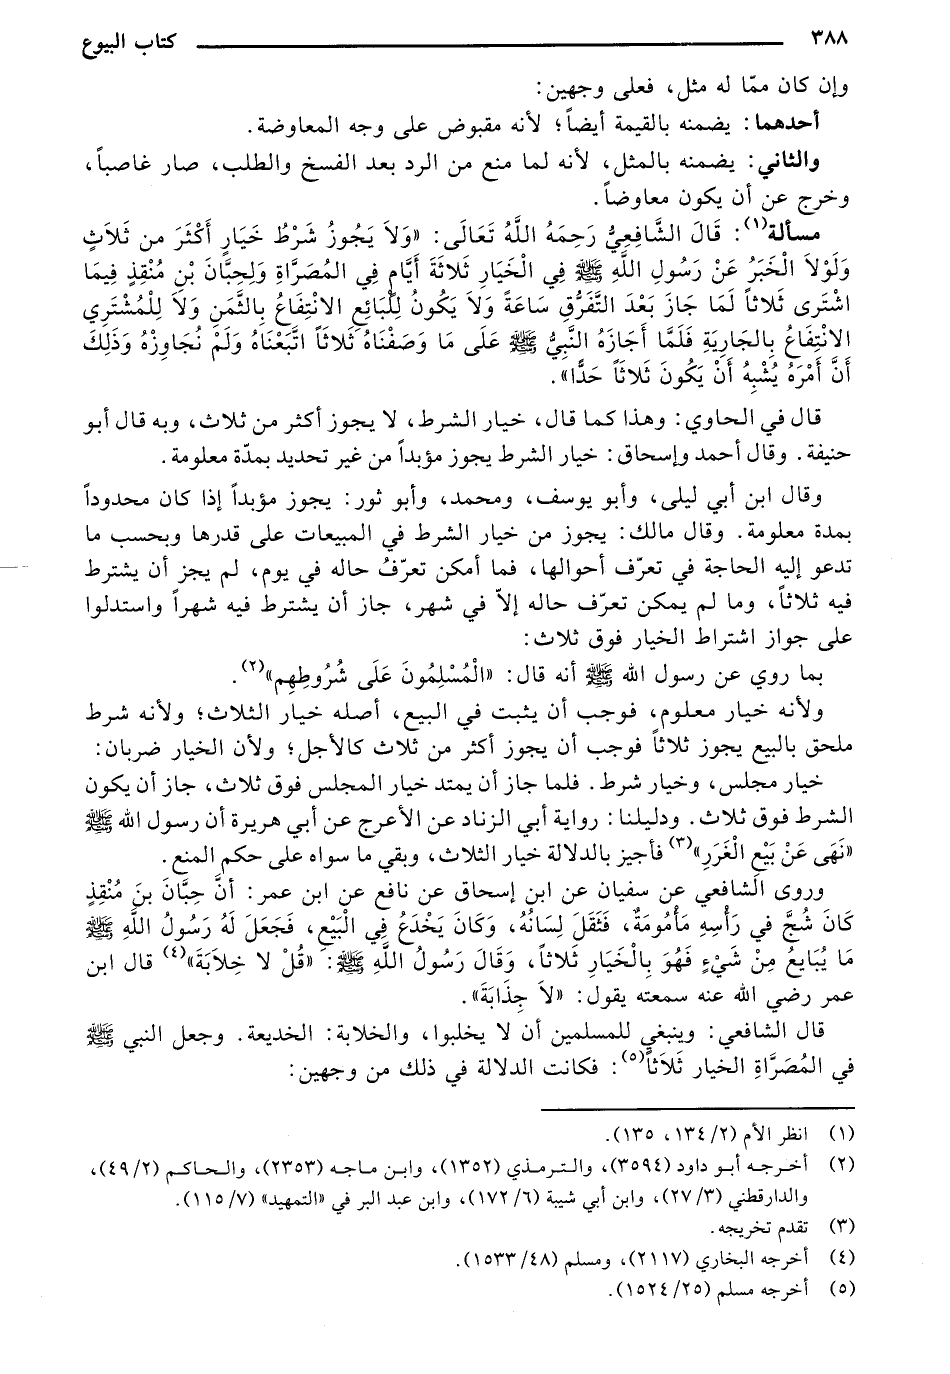 ٣٨٨ كتاب البيوع
وإن كان ممّا له مثل، فعلى وجهين:
أحدهما: يضمنه بالقيمة أيضاً؛ لأنه مقبوض على وجه المعاوضة.
والثاني: يضمنه بالمثل، لأنه لما منع من الرد بعد الفسخ والطلب، صار غاصباً،
وخرج عن أن يكون معاوضاً.
مسألة(١): قَالَ الشَّافِعِيُّ رَحِمَهُ اللَّهُ تَعَالَى: «وَلاَ يَجُوزُ شَرْطُ خَيَارٍ أَكْثَرَ من ثَلاَثٍ
وَلَوْلاَ الْخَبَرُ عَنْ رَسُولِ اللَّهِ ﷺ فِي الْخَيَارِ ثَلاَثَةَ أَيَّامٍ فِي المُصَرَّاةِ وَلِحِبَّانَ بْنِ مُنْقِذٍ فِيمَا
اشْتَرى ثَلاثاً لَمَا جَازَ بَعْدَ التَّفَرُّقِ سَاعَةً وَلاَ يَكُونُ لِلْبَائِعِ الانْتِفَاعُ بِالثَّمَنِ وَلاَ لِلْمُشْتَرِي
الانْتِفَاعُ بِالجَارِيَةِ فَلَمَّا أَجَازَهُ النَّبِيُّ ﷺ عَلَى مَا وَصَفْنَاهُ ثَلاَثاً اتَّبَعْنَاهُ وَلَمْ نُجَاوِزْهُ وَذَلِكَ
أَنَّ أَمْرَهُ يُشْبِهُ أَنْ يَكُونَ ثَلاَثاً حَدًّا».
قال في الحاوي: وهذا كما قال، خيار الشرط، لا يجوز أكثر من ثلاث، وبه قال أبو
حنيفة. وقال أحمد وإسحاق: خيار الشرط يجوز مؤبداً من غير تحديد بمدّة معلومة.
وقال ابن أبي ليلى، وأبو يوسف، ومحمد، وأبو ثور: يجوز مؤبداً إذا كان محدوداً
بمدة معلومة. وقال مالك: يجوز من خيار الشرط في المبيعات على قدرها وبحسب ما
تدعو إليه الحاجة في تعرّف أحوالها، فما أمكن تعرّفُ حاله في يوم، لم يجز أن يشترط
فيه ثلاثاً، وما لم يمكن تعرّف حاله إلاّ في شهر، جاز أن يشترط فيه شهراً واستدلوا
على جواز اشتراط الخيار فوق ثلاث:
بما روي عن رسول الله ﷺ أنه قال: «الْمُسْلِمُونَ عَلَى شُرُوطِهِم»(٢).
ولأنه خيار معلوم، فوجب أن يثبت في البيع، أصله خيار الثلاث؛ ولأنه شرط
ملحق بالبيع يجوز ثلاثاً فوجب أن يجوز أكثر من ثلاث كالأجل؛ ولأن الخيار ضربان:
خيار مجلس، وخيار شرط. فلما جاز أن يمتد خيار المجلس فوق ثلاث، جاز أن يكون
الشرط فوق ثلاث. ودليلنا: رواية أبي الزناد عن الأعرج عن أبي هريرة أن رسول الله ﷺ
«نَهَى عَنْ بَيْعِ الْغَرَرِ»(٣) فأجيز بالدلالة خيار الثلاث، وبقي ما سواه على حكم المنع.
وروى الشافعي عن سفيان عن ابن إسحاق عن نافع عن ابن عمر: أنَّ حِبَّانَ بنَ مُنْقِذٍ
كَانَ شُجَّ في رَأْسِهِ مَأْمُومَةٌ، فَثَقَلَ لِسَانُهُ، وَكَانَ يَخْدَعُ فِي الْبَيْعِ، فَجَعَلَ لَهُ رَسُولُ اللَّهِ ﷺ
مَا يُبَايعُ مِنْ شَيْءٍ فَهُوَ بِالْخَيَارِ ثَلاثاً، وَقَالَ رَسُولُ اللَّهِ ﷺ: «قُلْ لا خِلابَةَ»(٤) قال ابن
عمر رضي الله عنه سمعته يقول: «لاَ جِذَابَةَ».
قال الشافعي: وينبغي للمسلمين أن لا يخلبوا، والخلابة: الخديعة. وجعل النبي ﷺ
في المُصَرَّاةِ الخيار ثَلاَثاً(٥): فكانت الدلالة في ذلك من وجهين:
(١) انظر الأم (٢/ ١٣٤، ١٣٥).
(٢) أخرجه أبو داود (٣٥٩٤)، والترمذي (١٣٥٢)، وابن ماجه (٢٣٥٣)، والحاكم (٢/ ٤٩)،
والدارقطني (٣/ ٢٧)، وابن أبي شيبة (٦/ ١٧٢)، وابن عبد البر في «التمهيد» (٧/ ١١٥).
(٣) تقدم تخريجه.
(٤) أخرجه البخاري (٢١١٧)، ومسلم (٤٨/ ١٥٣٣).
(٥) أخرجه مسلم (٢٥/ ١٥٢٤).